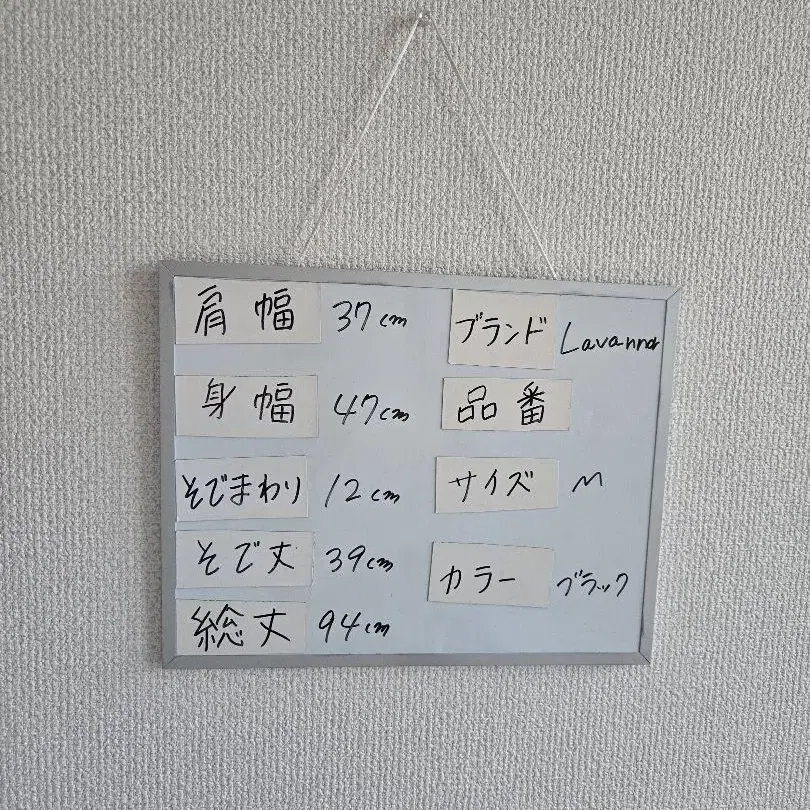 肩幅 37cm
身幅 47cm
そでまわり 12cm
そで丈 39cm
総丈 94cm
ブランド Lavannar
品番
サイズ M
カラー ブラック